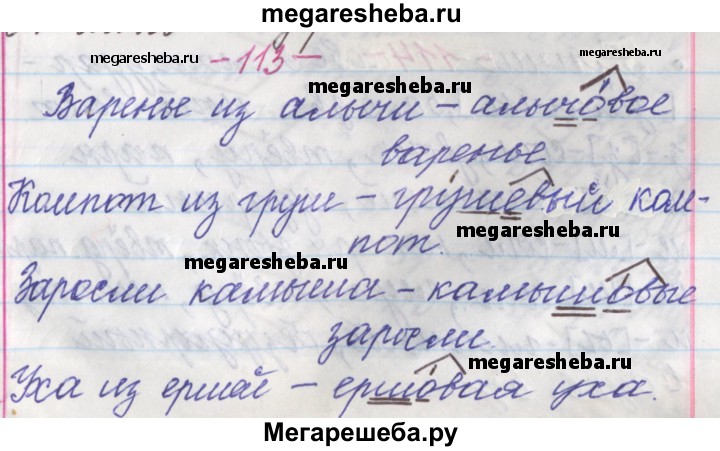 megaresheba.ru
megaresheba.ru
- 113 -
megaresheba.ru
Варенье из алычи - алычовое
варенье
Компот из груш - грушевый ком-
megaresheba.ru
пот.
megaresheba.ru
Заросли камыша - камышовые
заросли.
megaresheba.ru
Уха из ершей - ершовая уха.
Мегарешеба.ру